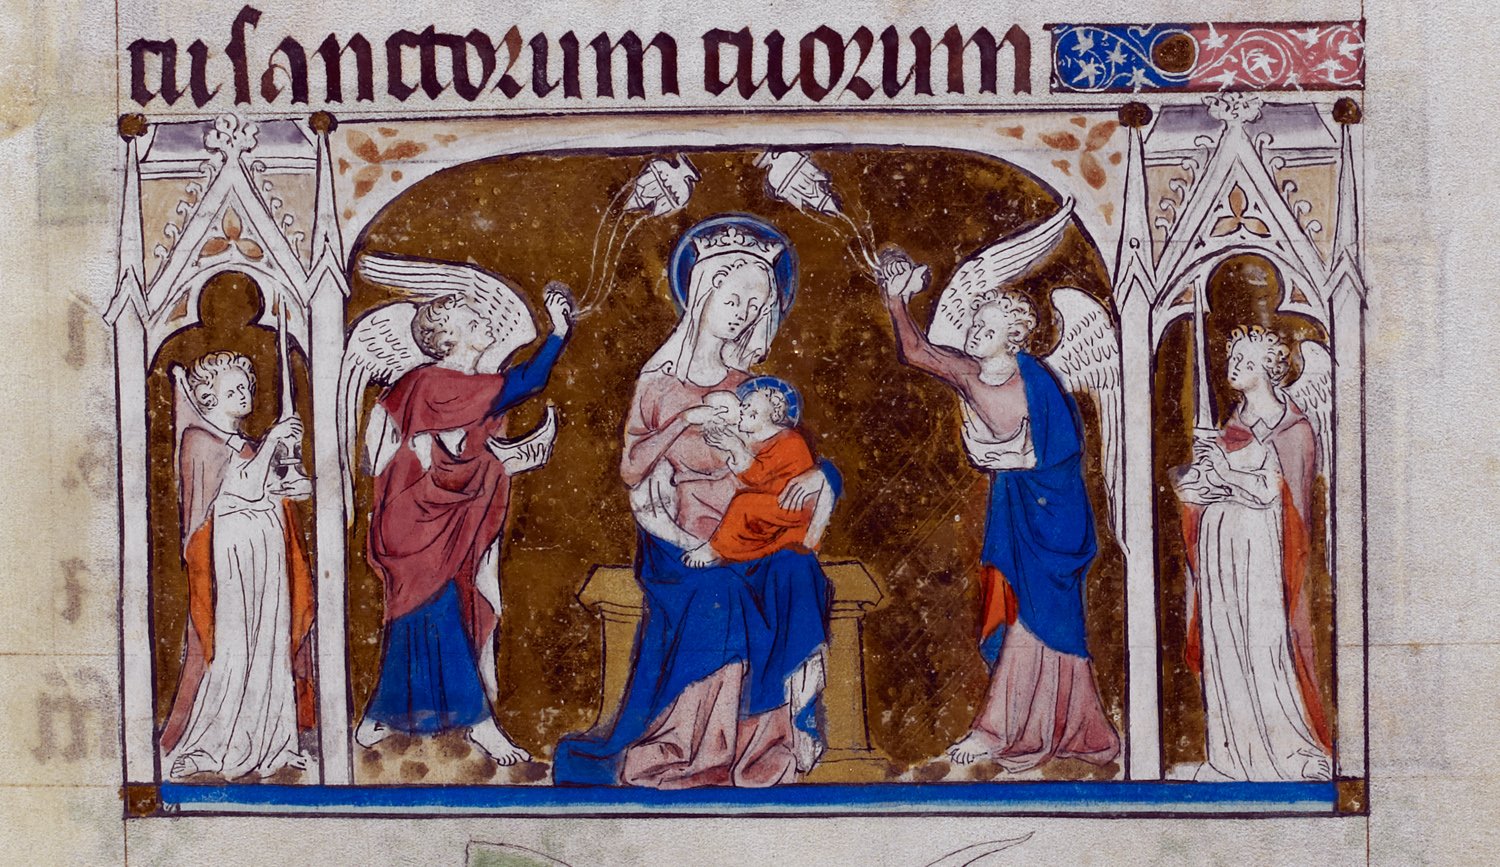 tu sanctorum tuorum